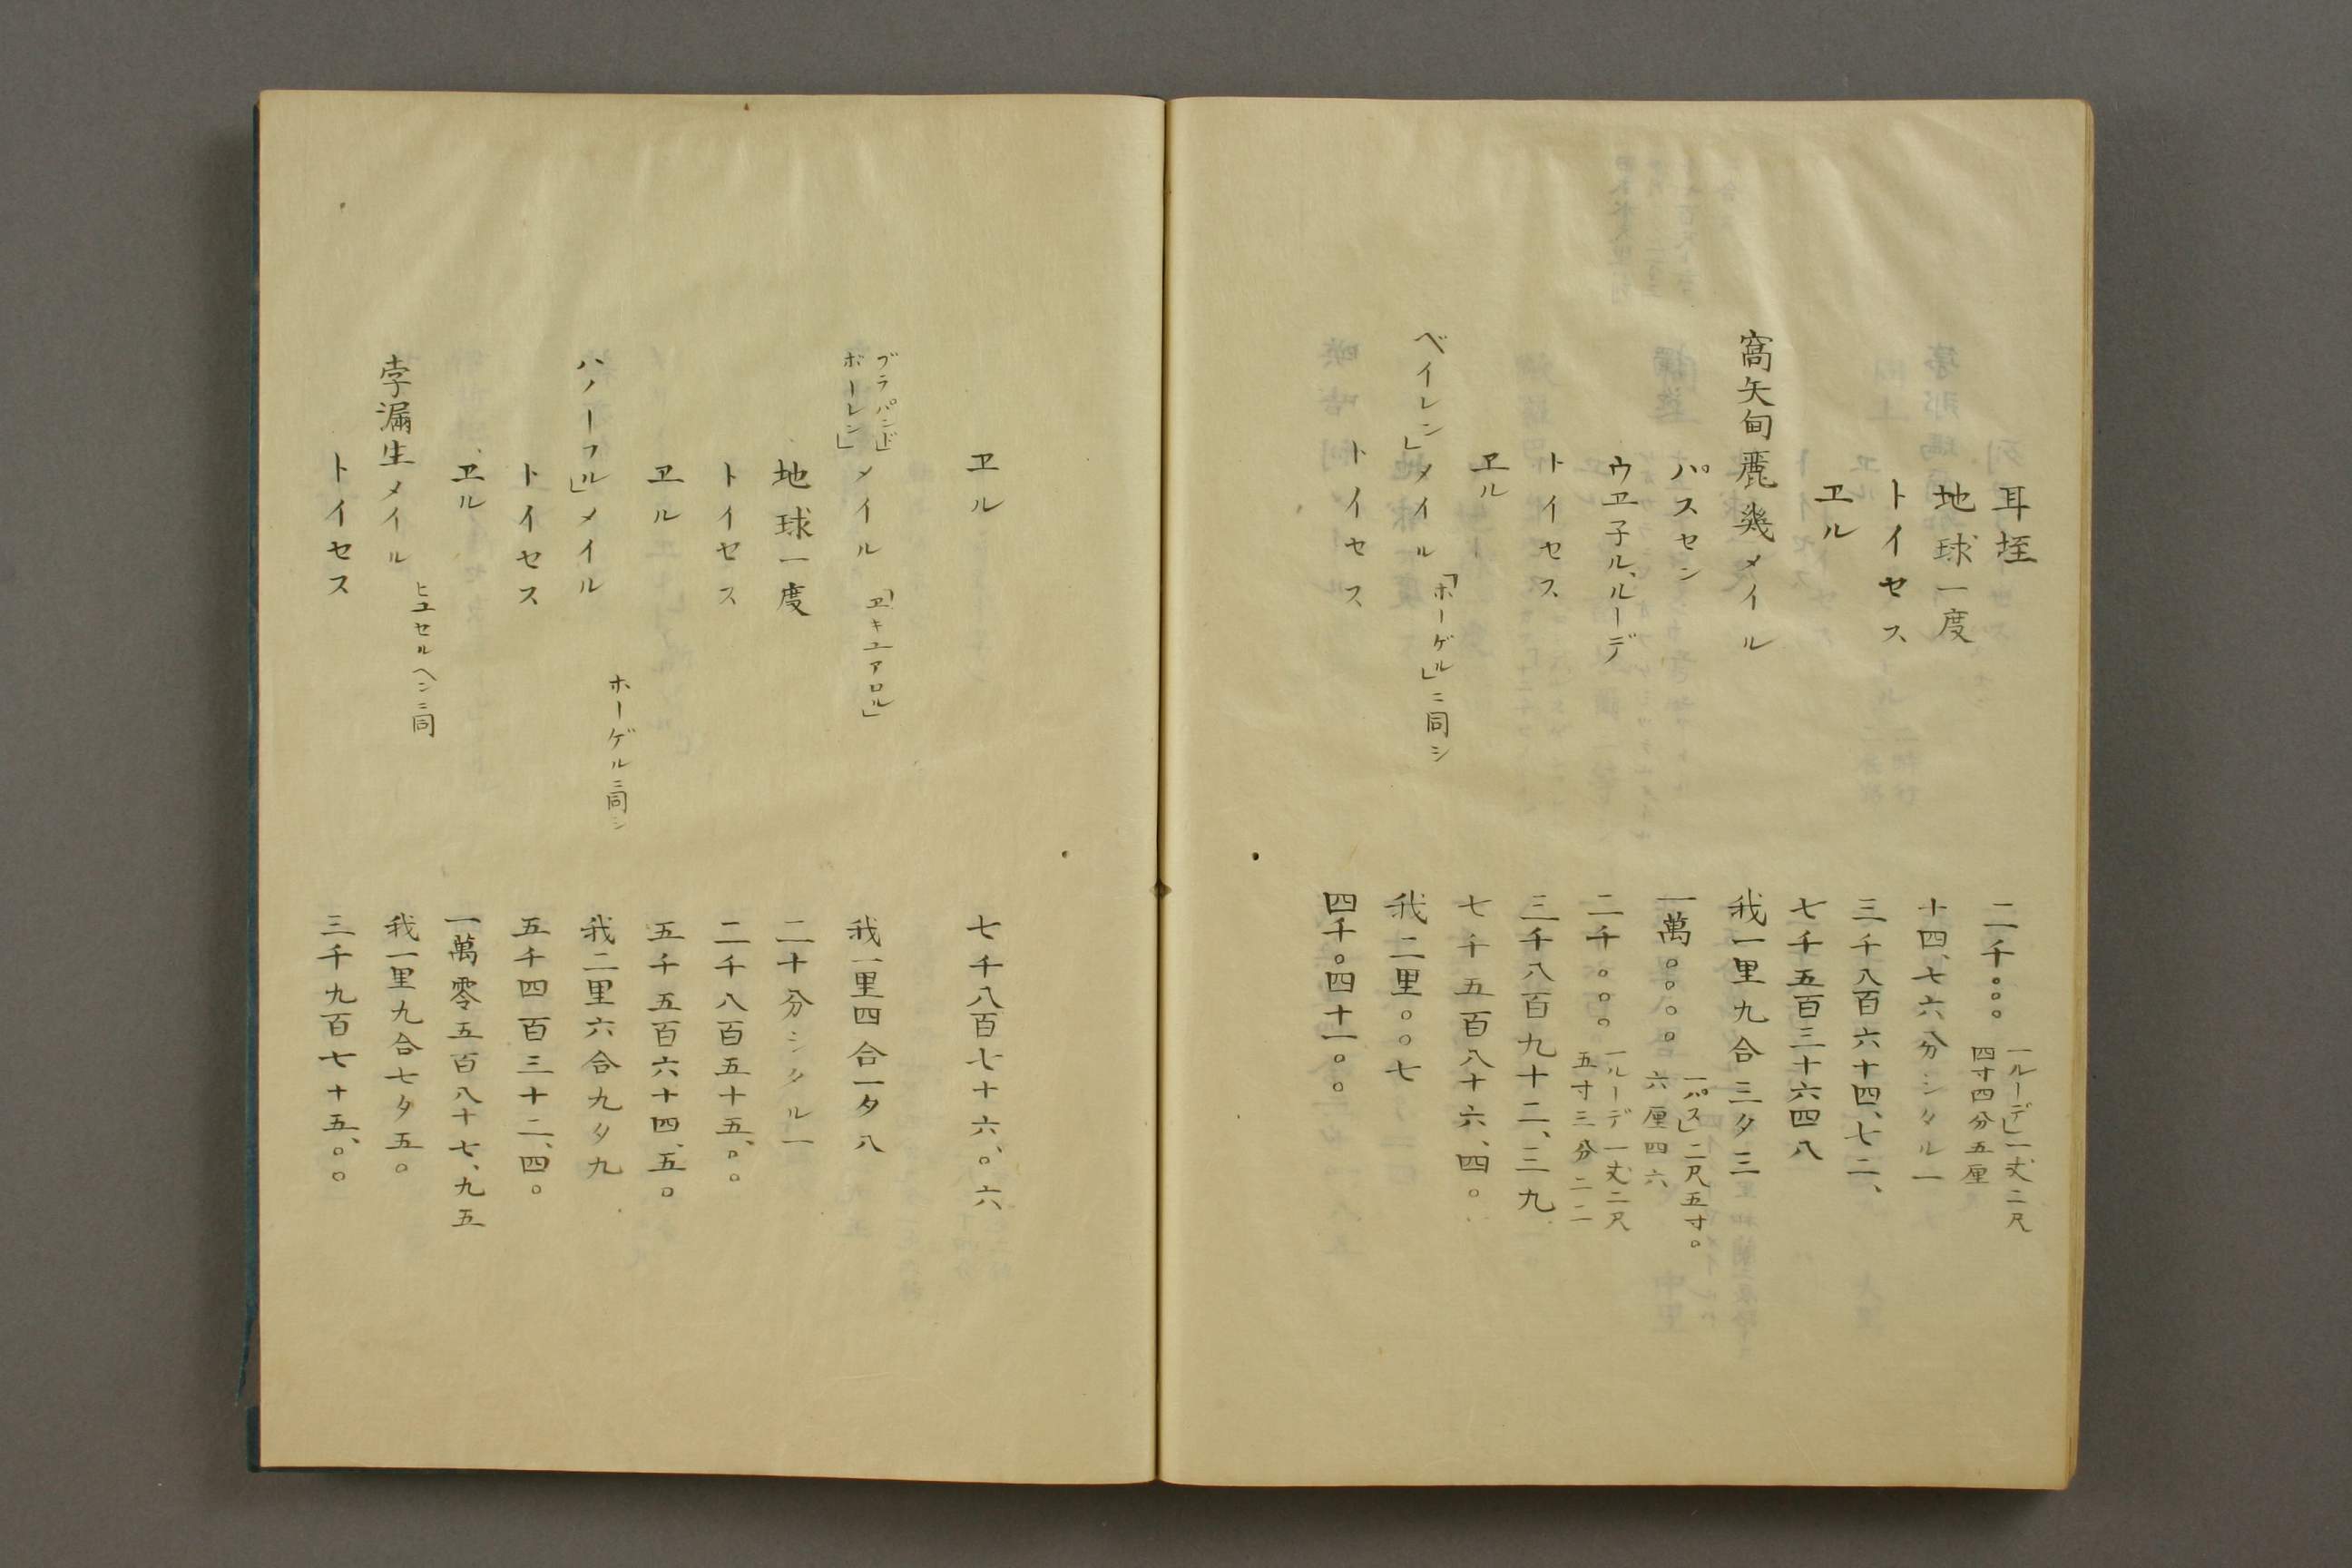 耳堊 二千。。。 一ルーデ」一丈二尺
四寸四分五厘
地球一度 十四、七六分シタル一
トイセス 三千八百六十四、七二、
ヱル 七千五百三十六四八
窩矢甸麗幾メイル 我一里九合三夕三
パスセン 一萬。。。。 一パス」二尺五寸。
六厘四六
ウヱ子ル、ルーデ 二千。。。 一ルーデ一丈二尺
五寸三分二二
トイセス 三千八百九十二、三九
ヱル 七千五百八十六、四。
ベイレン」メイル 「ホーゲル」ニ同シ 我二里。。七
トイセス 四千。四十一。。
ヱル 七千八百七十六、。六
ブラバンド」
ボーレン」メイル 「ヱキユアロル」 我一里四合一夕八
地球一度 二十分シタル一
トイセス 二千八百五十五、。。
ヱル 五千五百六十四、五。
ハノーフル」メイル ホーゲルニ同シ 我二里六合九夕九
トイセス 五千四百三十二、四。
ヱル 一萬零五百八十七、九五
孛漏生メイル ヒユセルヘンニ同 我一里九合七夕五。
トイセス 三千九百七十五、。。